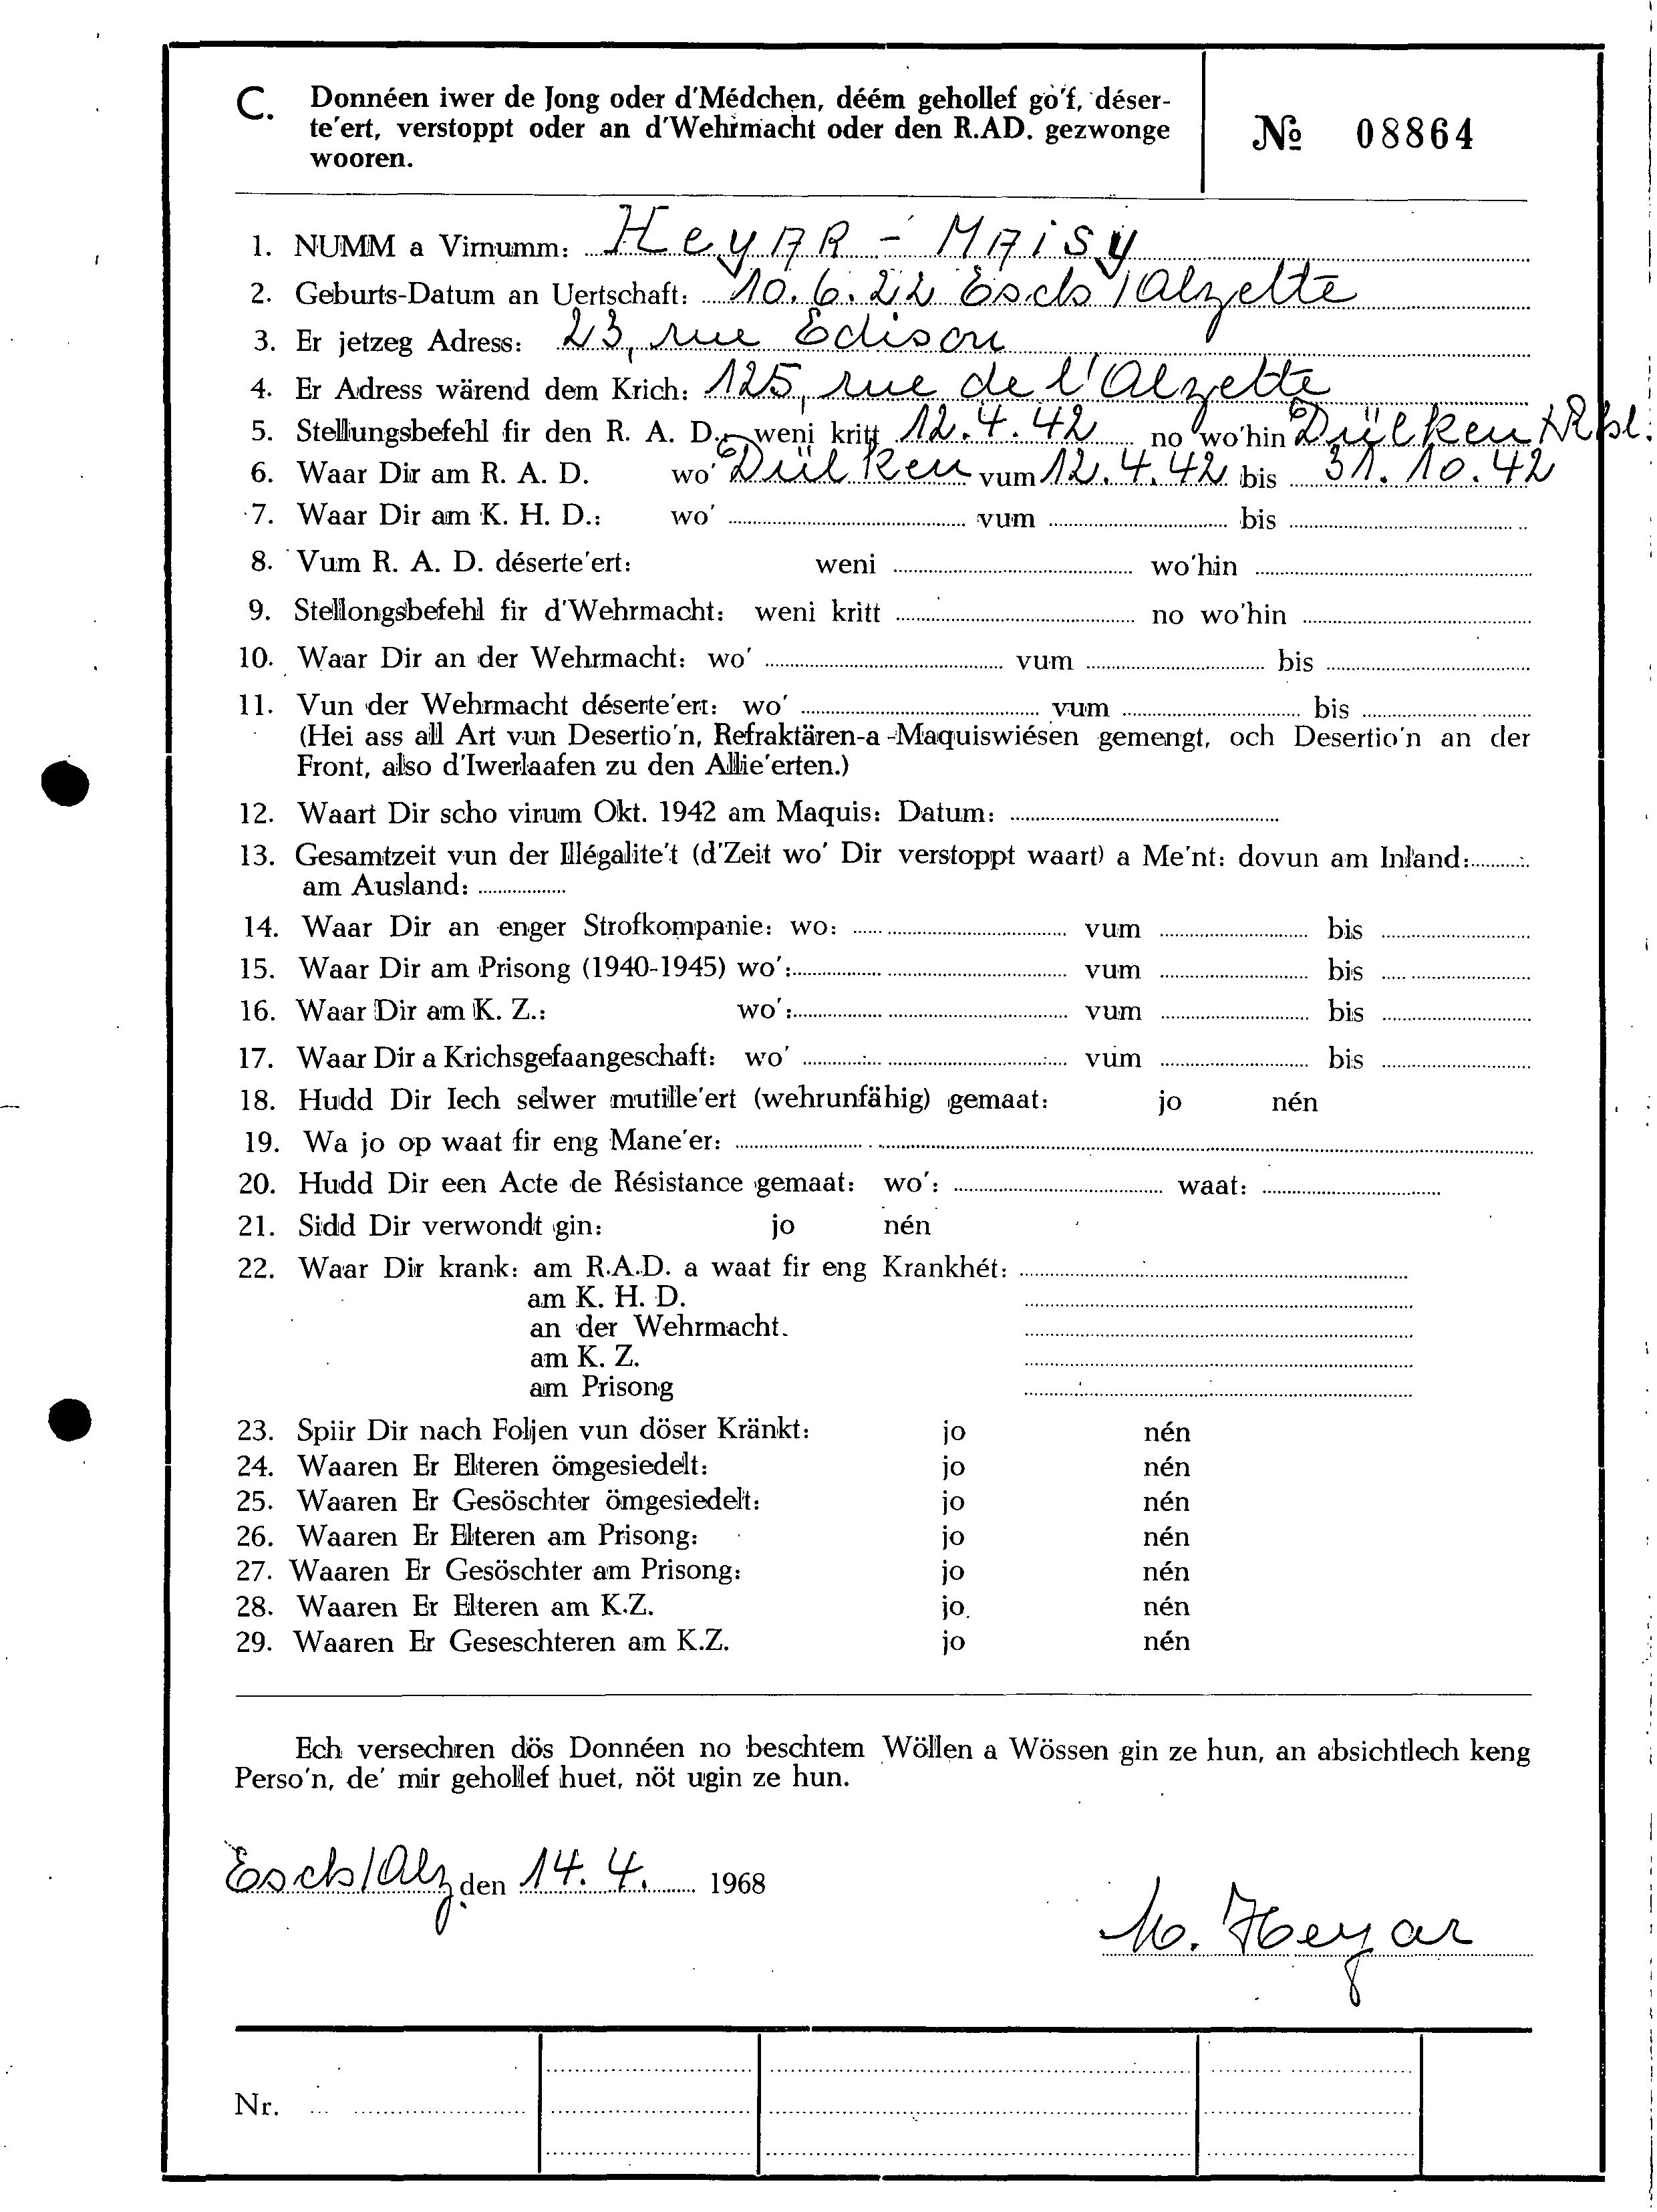 C. Donnéen iwer de Jong oder d'Médchen, déém gehollef go'f, déser-
te'ert, verstoppt oder an d'Wehrmacht oder den R.AD. gezwonge
wooren.
№ 08864
1. NUMM a Virnumm: HeyAR - MAiSy
2. Geburts-Datum an Uertschaft: 10.6.22 Esch/Alzette
3. Er jetzeg Adress: 23, rue Edison
4. Er Adress wärend dem Krich: 125, rue de l'Alzette
5. Stellungsbefehl fir den R. A. D.: weni kritt 12.4.42 no wo'hin Dülken
6. Waar Dir am R. A. D. wo' Dülken vum 12.4.42 bis 31.10.42
7. Waar Dir am K. H. D.: wo' vum bis
8. Vum R. A. D. déserte'ert: weni wo'hin
9. Stellongsbefehl fir d'Wehrmacht: weni kritt no wo'hin
10. Waar Dir an der Wehrmacht: wo' vum bis
11. Vun der Wehrmacht déserte'ert: wo' vum bis
(Hei ass all Art vun Desertio'n, Refraktären-a-Maquiswiésen gemengt, och Desertio'n an der
Front, also d'Iwerlaafen zu den Allie'erten.)
12. Waart Dir scho virum Okt. 1942 am Maquis: Datum:
13. Gesamtzeit vun der Illégalite't (d'Zeit wo' Dir verstoppt waart) a Me'nt: dovun am Inland:
am Ausland:
14. Waar Dir an enger Strofkompanie: wo: vum bis
15. Waar Dir am Prisong (1940-1945) wo': vum bis
16. Waar Dir am K. Z.: wo': vum bis
17. Waar Dir a Krichsgefaangeschaft: wo' vum bis
18. Hudd Dir Iech selwer mutille'ert (wehrunfähig) gemaat: jo nén
19. Wa jo op waat fir eng Mane'er:
20. Hudd Dir een Acte de Résistance gemaat: wo': waat:
21. Sidd Dir verwondt gin: jo nén
22. Waar Dir krank: am R.A.D. a waat fir eng Krankhét:
am K. H. D.
an der Wehrmacht.
am K. Z.
am Prisong
23. Spiir Dir nach Foljen vun döser Kränkt: jo nén
24. Waaren Er Elteren ömgesiedelt: jo nén
25. Waaren Er Gesöschter ömgesiedelt: jo nén
26. Waaren Er Elteren am Prisong: jo nén
27. Waaren Er Gesöschter am Prisong: jo nén
28. Waaren Er Elteren am K.Z. jo nén
29. Waaren Er Geseschteren am K.Z. jo nén
Ech versechren dös Donnéen no beschtem Wöllen a Wössen gin ze hun, an absichtlech keng
Perso'n, de' mir gehollef huet, nöt ugin ze hun.
Esch/Alz. den 14.4. 1968
M. Heyar
Nr.